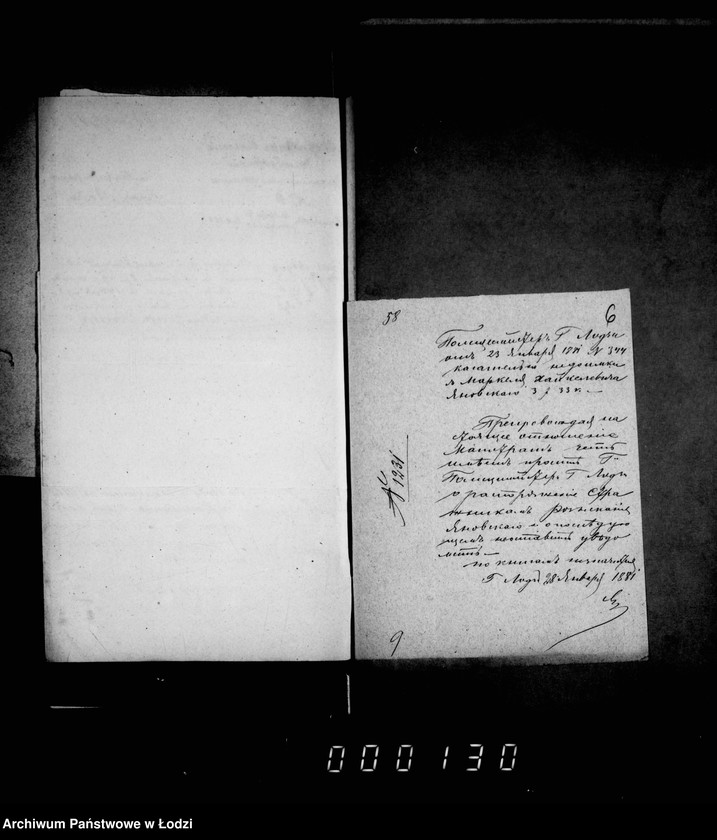 58
6
Полицмейстеръ Г Лодзи
отъ 23 Января 1881 N 344
касательно недоимки
съ Маркеля Хаскелевича
Яновскаго 3 р 33 к. —
Препровождая на
стоящее отношеніе
Магистратъ честь
имѣетъ просить Гⁿ
Полицмейстера Г Лодзи
о распоряженіи Стра
жникамъ розыскать
Яновскаго и о послѣдую
щемъ уведо
мить —
по книгамъ
Г Лодзь 28 Января 1881
№ 1231
9
000130
Archiwum Państwowe w Łodzi